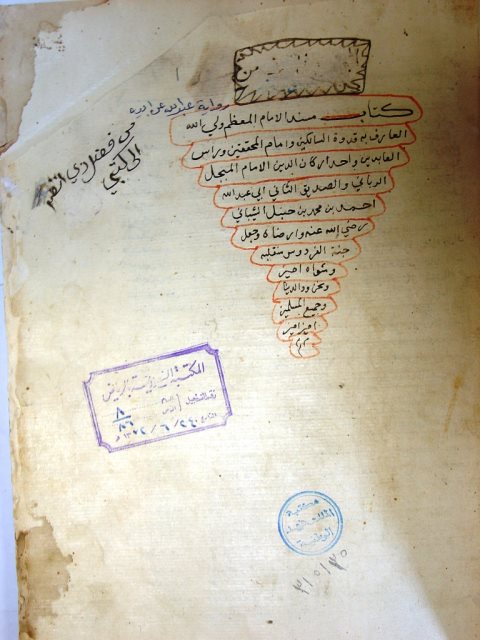 من
رواية عبد الله عن ابيه
كتاب مسند الامام المعظم ولي الله
العارف به قدوة السالكين وامام المحققين وراس
العابدين واحد اركان الدين الامام المبجل
الرباني والصديق الثاني ابي عبد الله
احمد بن محمد بن حنبل الشيباني
رضي الله عنه وارضاه وجعل
جنة الفردوس منقلبه
ومثواه امين
ونحن ووالدينا
وجميع المسلمين
امين امين
من فضل ذي
الى كتبي
المكتبة السعودية بالرياض
٨
٨٦
مكتبة
الملك فهد
الوطنية